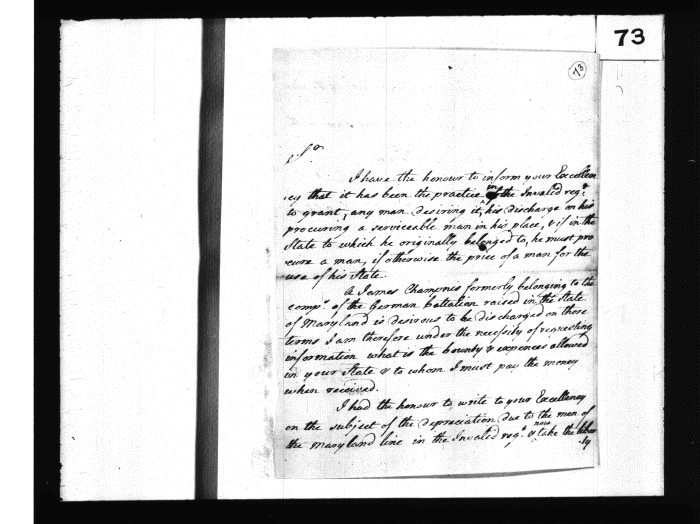 73
73
Sr
I have the honour to inform your Excellen
cy that it has been the practice in the Invalid regt.
to grant, any man desiring it, his discharge on his
procuring a serviceable man in his place, & if in the
State to which he originally belonged to, he must pro
cure a man, if otherwise the price of a man for the
use of his State.
A James Champnes formerly belonging to the
compy. of the German Battalion raised in the State
of Maryland is desirous to be discharged on those
terms I am therefore under the necessity of requesting
information what is the bounty & expences allowed
in your State & to whom I must pay the money
when received.
I had the honour to write to your Excellency
on the subject of the depreciation due to the men of
the Maryland line in the Invalid regt. & now take the liber
-ty